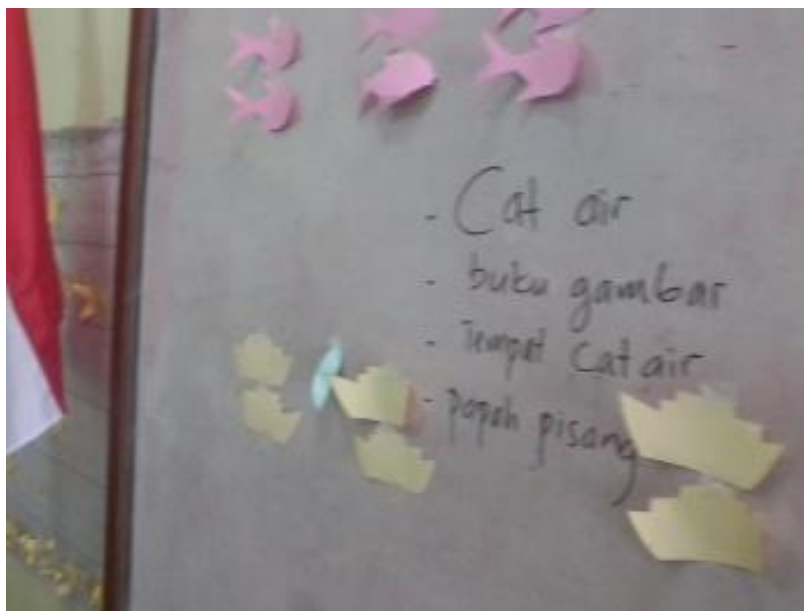 - Cat air
- buku gambar
- Tempat Cat air
- popoh pisang